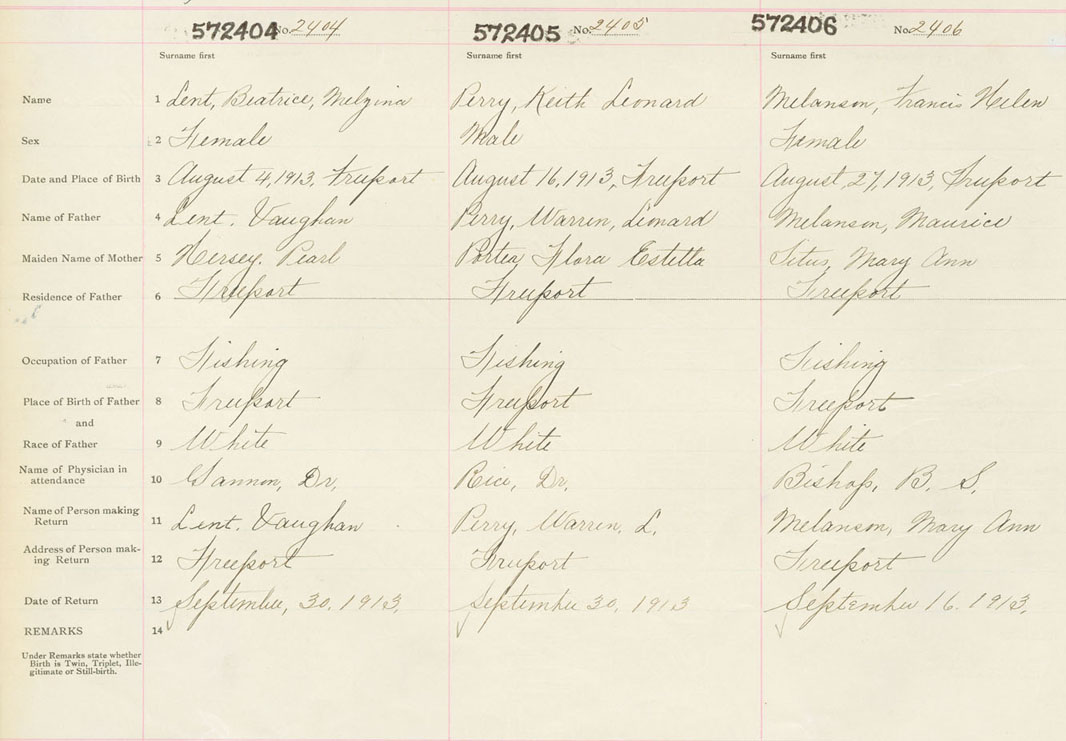 572404 No. 2404 572405 No. 2405 572406 No. 2406
Surname first Surname first Surname first
Name 1 Lent, Beatrice, Melzina Perry, Keith Leonard Melanson, Francis Helen
Sex 2 Female Male Female
Date and Place of Birth 3 August 4, 1913, Freeport August 16, 1913, Freeport August, 27, 1913, Freeport
Name of Father 4 Lent, Vaughan Perry, Warren, Leonard Melanson, Maurice
Maiden Name of Mother 5 Hersey, Pearl Porter Flora Estella Titus, Mary Ann
Residence of Father 6 Freeport Freeport Freeport
Occupation of Father 7 Fishing Fishing Fishing
Place of Birth of Father 8 Freeport Freeport Freeport
and
Race of Father 9 White White White
Name of Physician in
attendance 10 Gannon, Dr. Rice, Dr. Bishop, B. S.
Name of Person making
Return 11 Lent, Vaughan Perry, Warren, L. Melanson, Mary Ann
Address of Person mak-
ing Return 12 Freeport Freeport Freeport
Date of Return 13 September, 30, 1913. September 30, 1913 September 16, 1913.
REMARKS 14
Under Remarks state whether
Birth is Twin, Triplet, Ille-
gitimate or Still-birth.